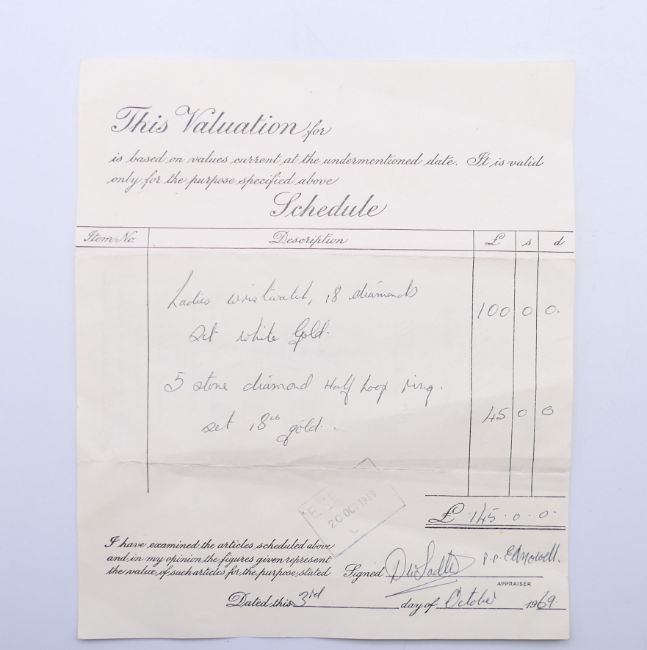 This Valuation for
is based on values current at the undermentioned date. It is valid
only for the purpose specified above
Schedule
Item No. Description £ s d
Ladies wristwatch, 18 diamonds 100 0 0.
set white Gold.
5 stone diamond Half Hoop ring.
set 18ct gold. 45 0 0
£ 145 . 0 . 0.
20 OCT 1969
I have examined the articles scheduled above
and in my opinion the figures given represent
the value of such articles for the purpose stated
Signed p.p.
APPRAISER
Dated this 3rd day of October 1969